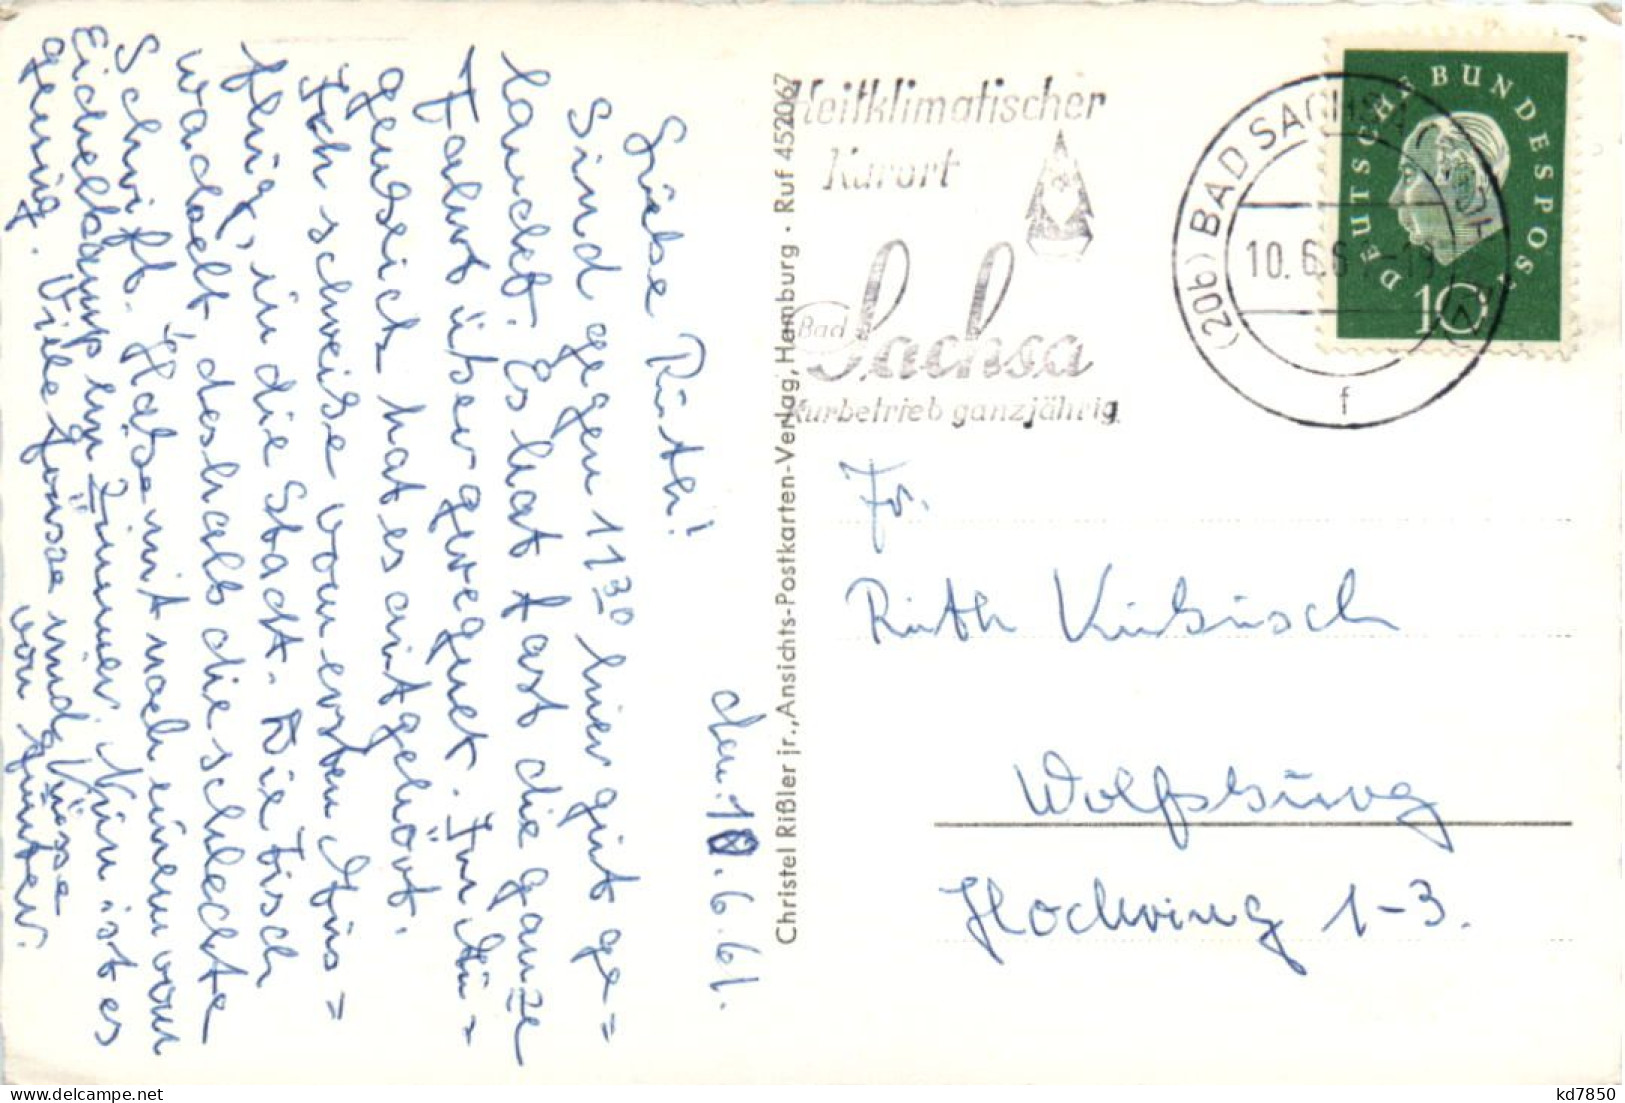 den 10.6.61.
Liebe Ruth!
Sind gegen 11 30 hier gut ge=
landet. Es hat fast die ganze
Fahrt über geregnet. Im Au=
genblick hat es aufgehört.
Ich schreibe vom ersten Aus=
flug, in die Stadt. Die Tisch
wackelt, deshalb die schlechte
Schrift. Habe mit noch einem vom
Eichelkamp ein Zimmer. Nun ist es
genug. Viele Grüsse und Küsse
von Günter.
Christel Rißler jr., Ansichts-Postkarten-Verlag, Hamburg · Ruf 452067
Heilklimatischer
Kurort
Bad Sachsa
Kurbetrieb ganzjährig
(20b) BAD SACHSA (SÜDHARZ)
10.6.61-19
f
DEUTSCHE BUNDESPOST
10
Fr.
Ruth Kubusch
Wolfsburg
Hochring 1-3.
kd7850